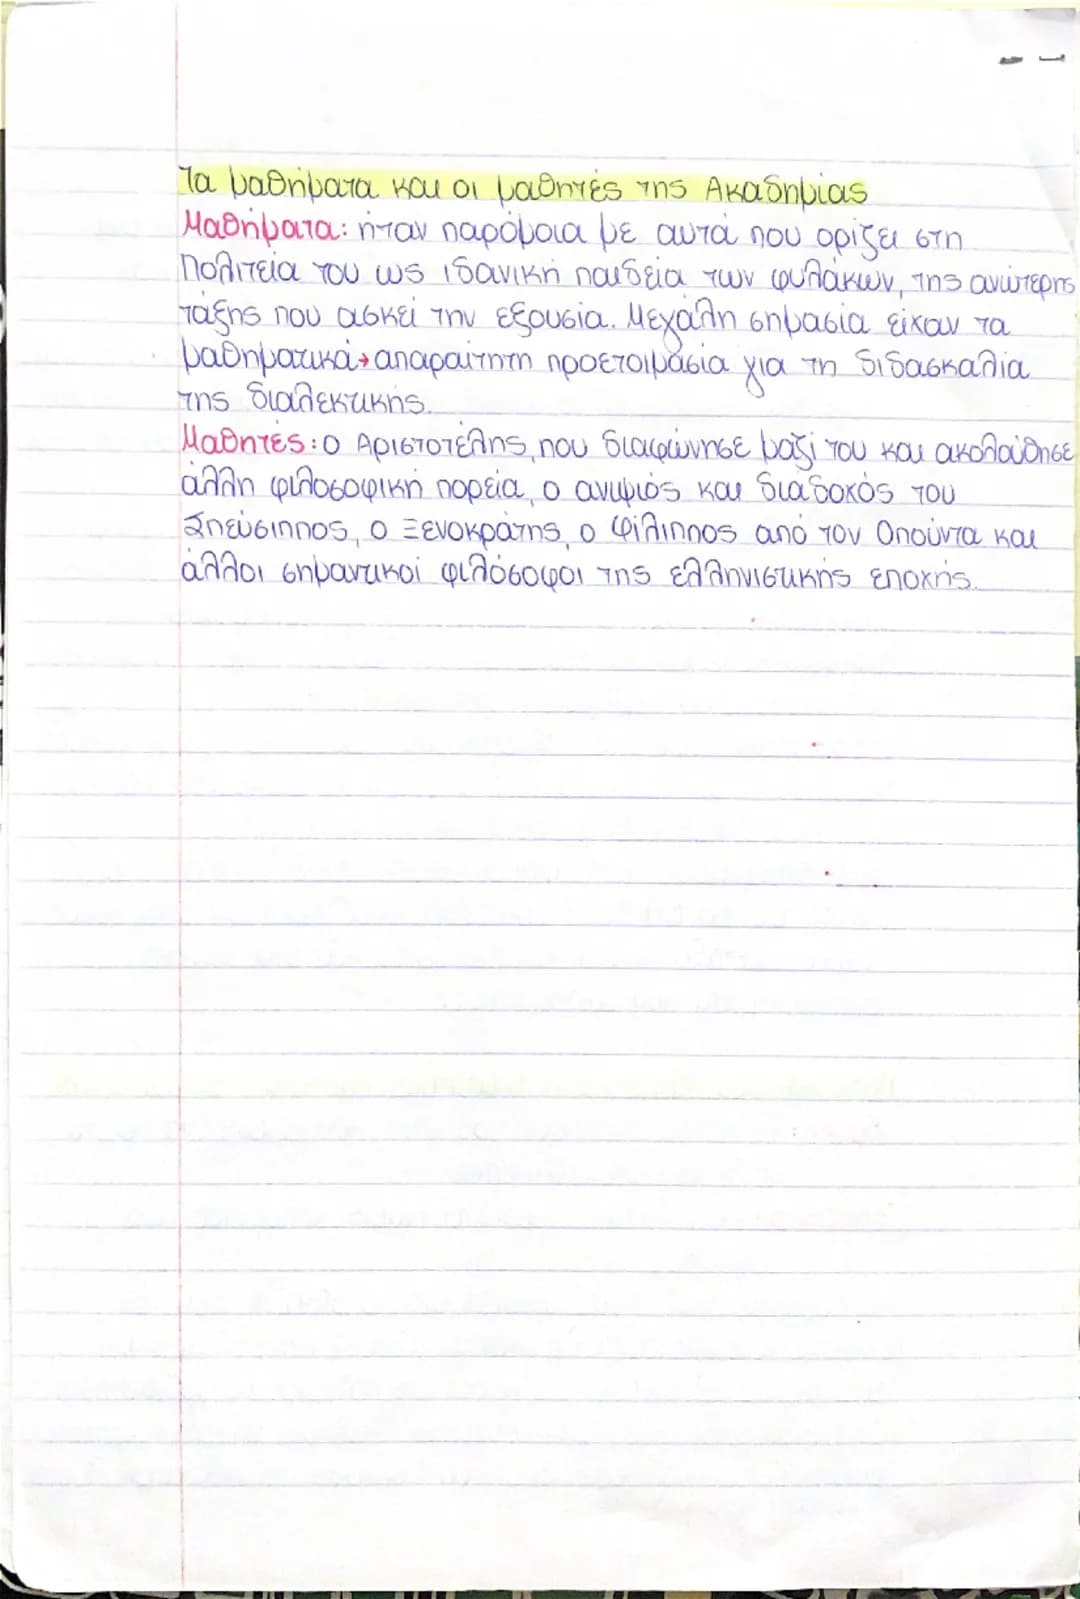 Τα μαθήματα και οι μαθητές της Ακαδημίας
Μαθήματα: ήταν παρόμοια με αυτά που ορίζει στη
Πολιτεία του ως ιδανική παιδεία των φυλάκων, της ανώτερης
τάξης που ασκεί την εξουσία. Μεγάλη σημασία είχαν τα
μαθηματικά→απαραίτητη προετοιμάσία για τη διδασκαλία
της διαλεκτικής.
Μαθητές: ο Αριστοτέλης, που διαφώνησε μαζί του και ακολούθησε
άλλη φιλοσοφική πορεία, ο ανιψιός και διάδοχός του
Σπεύσιππος, ο Ξενοκράτης, ο Φίλιππος από τον Οπούντα και
άλλοι σημαντικοί φιλόσοφοι της ελληνιστικής εποχής.